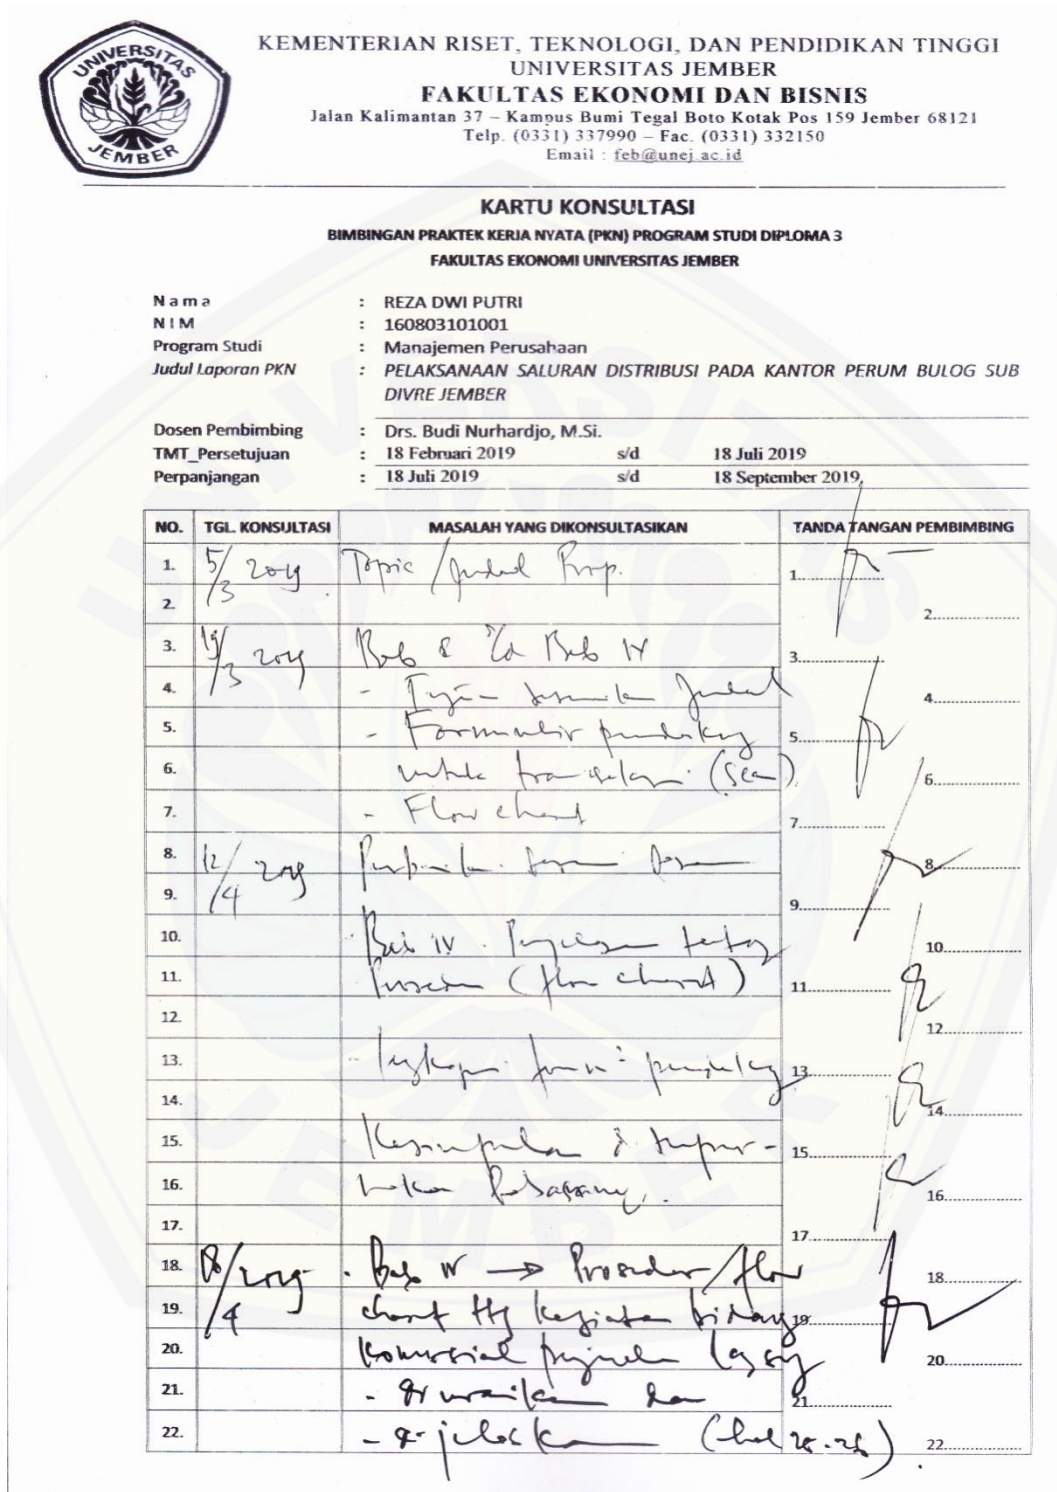 UNIVERSITAS
JEMBER
KEMENTERIAN RISET, TEKNOLOGI, DAN PENDIDIKAN TINGGI
UNIVERSITAS JEMBER
FAKULTAS EKONOMI DAN BISNIS
Jalan Kalimantan 37 – Kampus Bumi Tegal Boto Kotak Pos 159 Jember 68121
Telp. (0331) 337990 – Fac. (0331) 332150
Email : feb@unej.ac.id
KARTU KONSULTASI
BIMBINGAN PRAKTEK KERJA NYATA (PKN) PROGRAM STUDI DIPLOMA 3
FAKULTAS EKONOMI UNIVERSITAS JEMBER
Nama : REZA DWI PUTRI
NIM : 160803101001
Program Studi : Manajemen Perusahaan
Judul Laporan PKN : PELAKSANAAN SALURAN DISTRIBUSI PADA KANTOR PERUM BULOG SUB
DIVRE JEMBER
Dosen Pembimbing : Drs. Budi Nurhardjo, M.Si.
TMT_Persetujuan : 18 Februari 2019 s/d 18 Juli 2019
Perpanjangan : 18 Juli 2019 s/d 18 September 2019
NO. TGL. KONSULTASI MASALAH YANG DIKONSULTASIKAN TANDA TANGAN PEMBIMBING
1. 5/3 2019 Topic / Judul Prop. 1.
2. 2.
3. 19/3 2019 Bab s/d Bab IV 3.
4. - Judul 4.
5. - Formulir 5.
6. untuk (Scan) 6.
7. - Flow chart 7.
8. 12/4 2019 8.
9. 9.
10. Bab IV. 10.
11. (flow chart) 11.
12. 12.
13. 13.
14. 14.
15. Kesimpulan 15.
16. 16.
17. 17.
18. /4 2019 Bab IV → Prosedur / flow 18.
19. chart ttg kegiatan bidang 19.
20. Komersial 20.
21. - diuraikan dan 21.
22. - dijelaskan (hal 22.